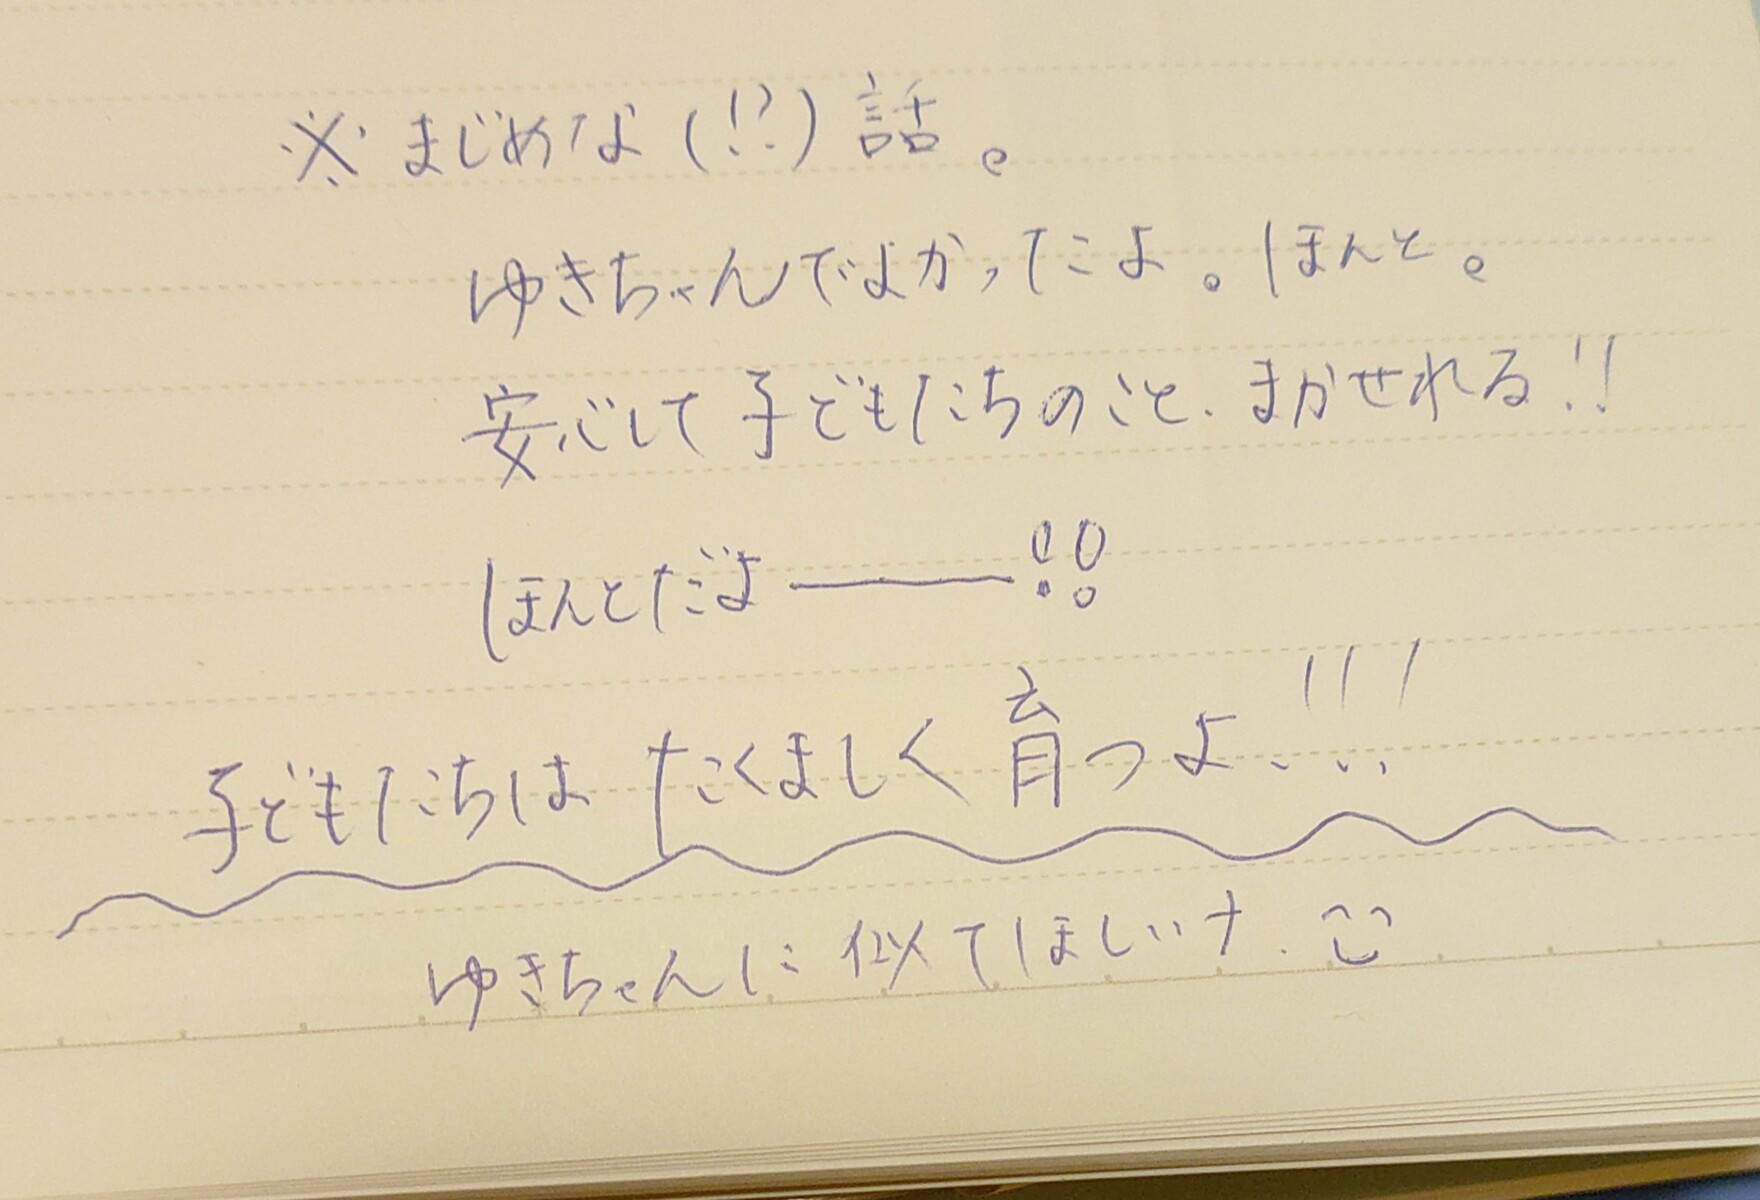 ※まじめな(!?)話。
ゆきちゃんでよかったよ。ほんと。
安心して子どもたちのこと、まかせれる!!
ほんとだよ――!!
子どもたちはたくましく育つよ!!!
ゆきちゃんに似てほしいナ.